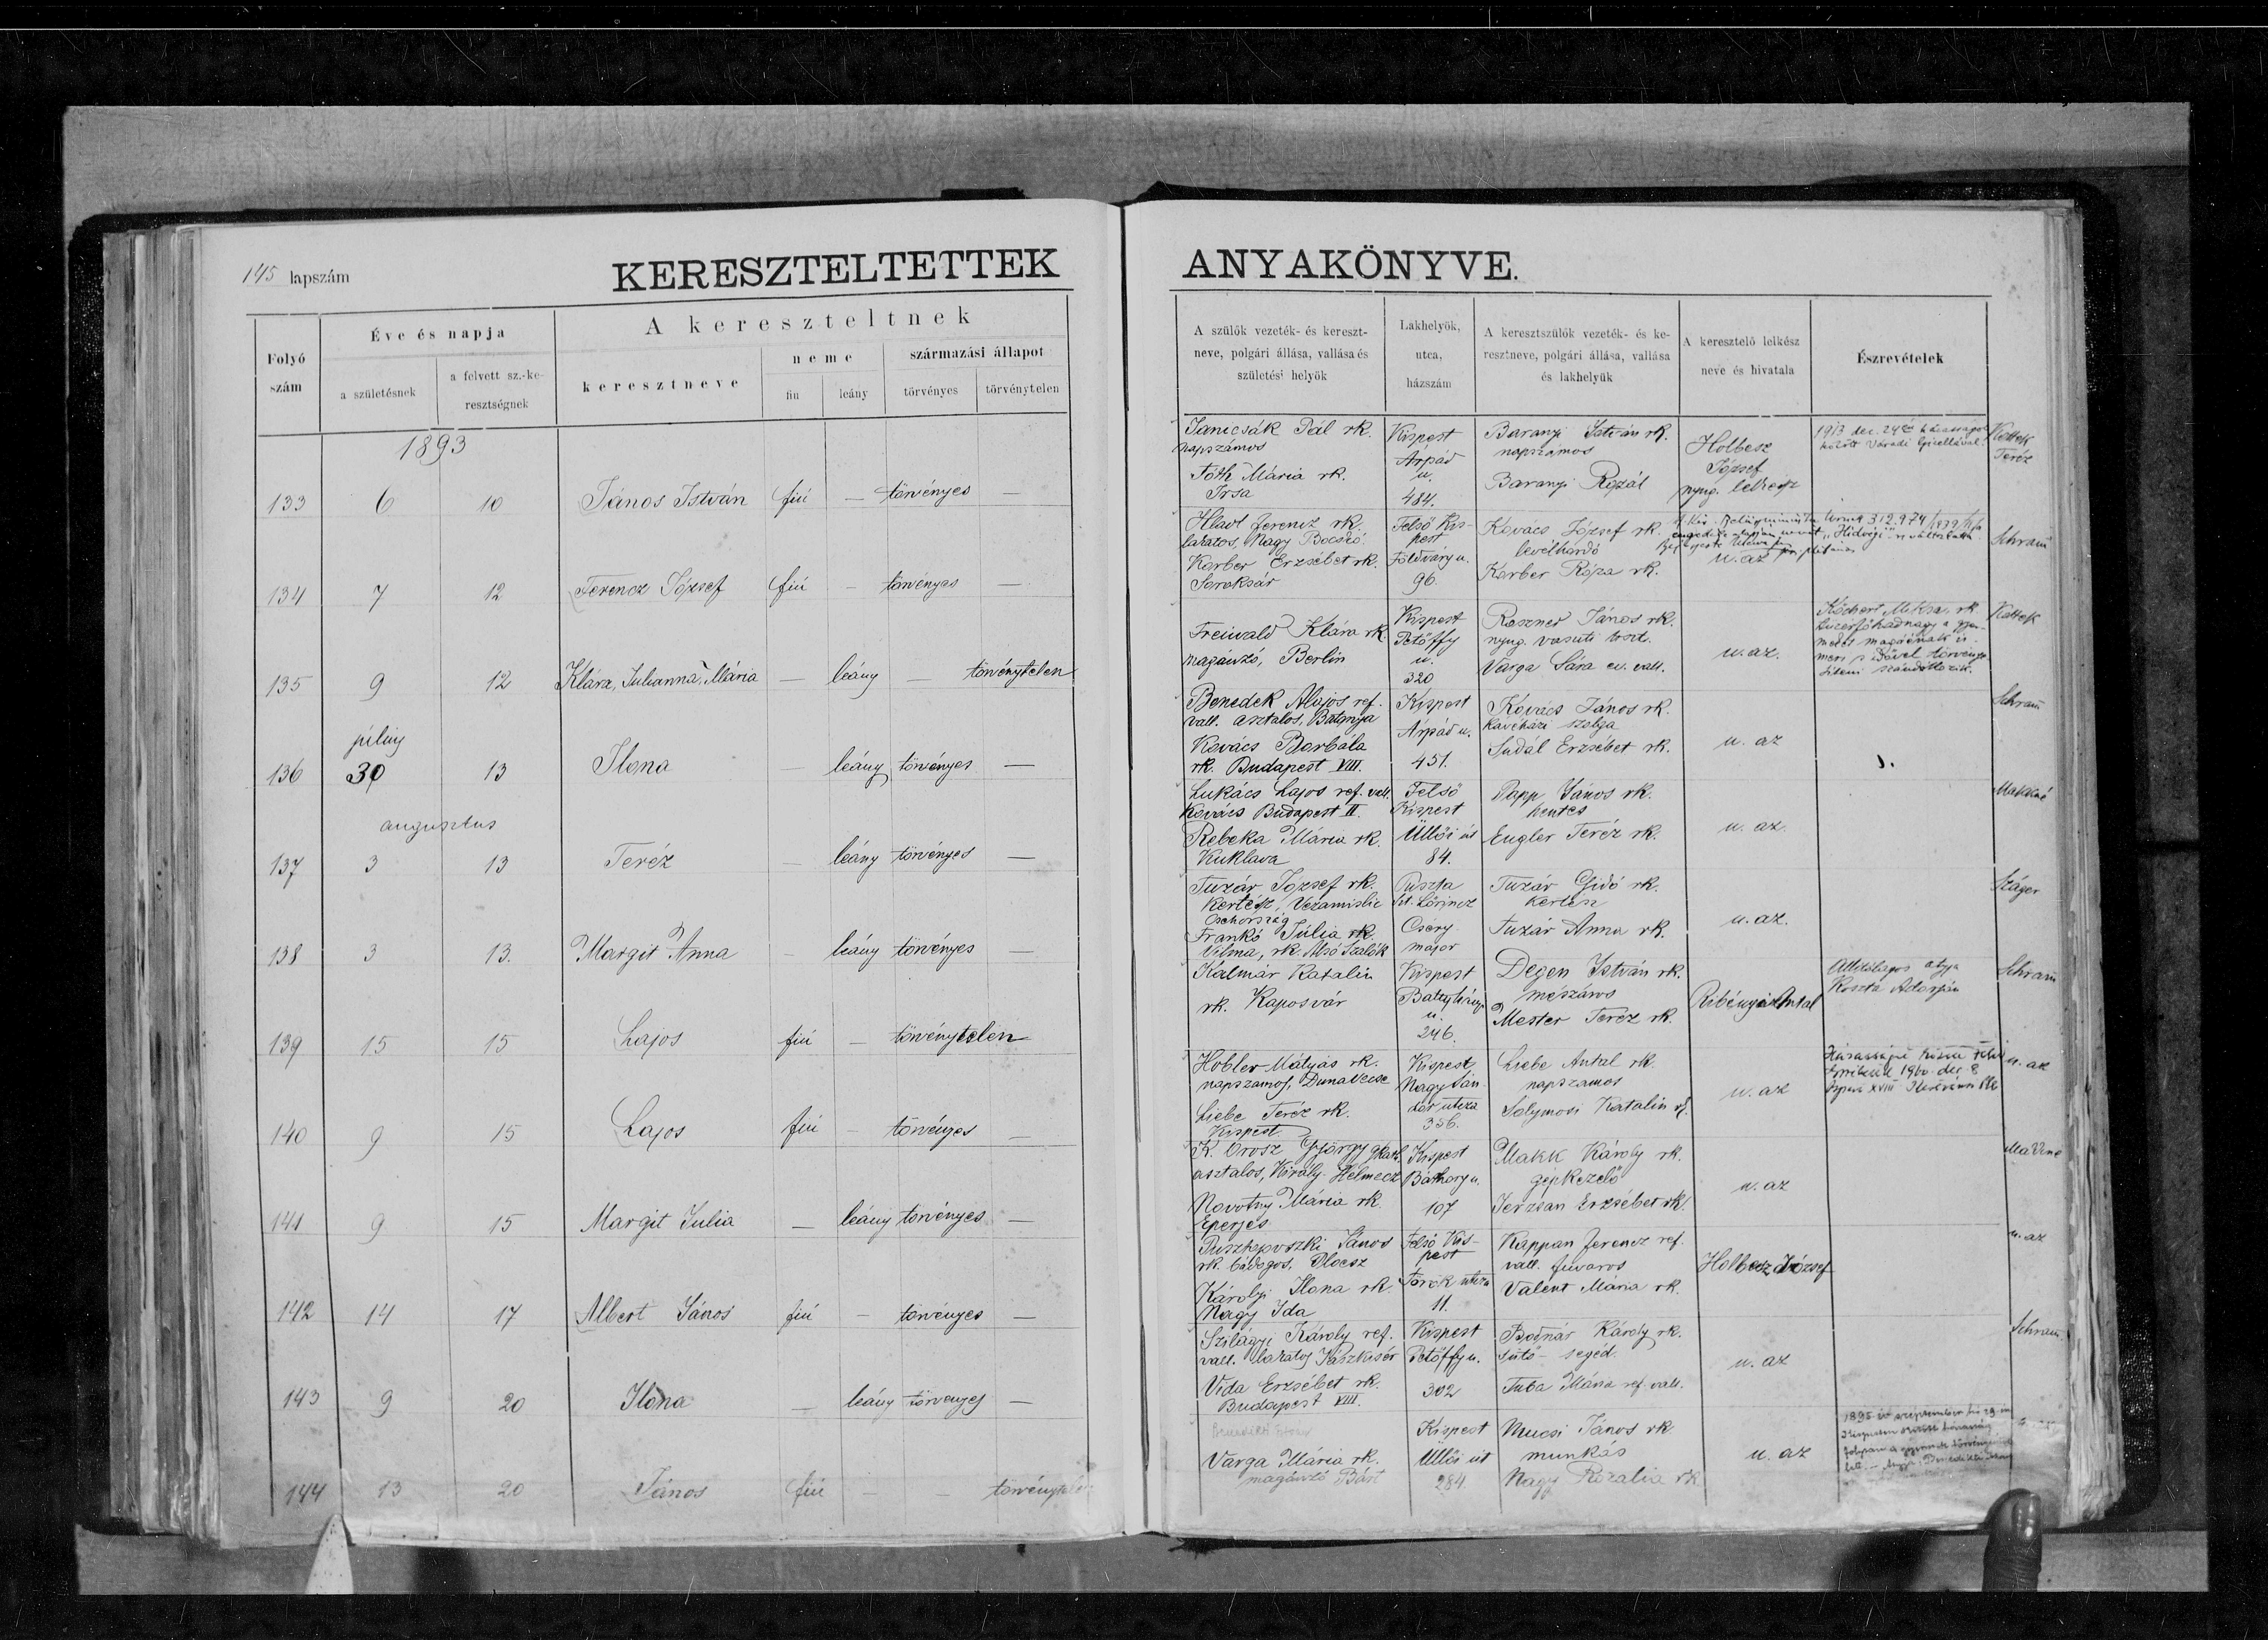 145 lapszám
KERESZTELTETTEK
ANYAKÖNYVE.
Folyó szám
Éve és napja
a születésnek
a felvett sz.-ke-
resztségnek
A kereszteltnek
keresztneve
neme
fiu
leány
származási állapot
törvényes
törvénytelen
A szülők vezeték- és kereszt-
neve, polgári állása, vallása és
születési helyök
Lakhelyök,
utca,
házszám
A keresztszülők vezeték- és ke-
resztneve, polgári állása, vallása
és lakhelyük
A keresztelő lelkész
neve és hivatala
Észrevételek
1893
133 6 10 János István fiú — törvényes —
Janicsák Pál rk.
napszámos
Tóth Mária rk.
Irsa
Kispest
Árpád
u.
484.
Baranyi István rk.
napszámos
Baranyi Rozál
Holbesz
József
nyug. lelkész
Kottek
Teréz
134 7 12 Ferencz József fiú — törvényes —
Hladl Ferencz rk.
lakatos, Nagy Bocskó
Korber Erzsébet rk.
Soroksár
Felső Kis-
pest
Földváry u.
96.
Kovács József rk.
levélhordó
Korber Róza rk.
u. az
Schram
135 9 12 Klára, Julianna, Mária — leány — törvénytelen
Freiwald Klára rk.
magánzó, Berlin
Kispest
Petőffy
u.
320
Roszner János rk.
nyug. vasuti tiszt.
Varga Sára ev. vall.
u. az.
Kottek
július
136 30 13 Ilona — leány törvényes —
Benedek Alajos ref.
vall. asztalos, Batonya
Kovács Borbála
rk. Budapest VIII.
Kispest
Árpád u.
451.
Kovács János rk.
kávéházi szolga
Sudál Erzsébet rk.
u. az
Schram
augusztus
137 3 13 Teréz — leány törvényes —
Lukács Lajos ref. vall.
kovács Budapest II.
Rebeka Mária rk.
Kuklava
Felső
Kispest
Üllői út
84.
Papp János rk.
hentes
Engler Teréz rk.
u. az.
Makkné
138 3 13. Margit Anna — leány törvényes —
Tuzár József rk.
kertész, Vezamislic
Csehország
Frankó Júlia rk.
Vilma, rk. Alsó Szalók
Puszta
Szt. Lőrincz
Cséry
major
Tuzár Gidó rk.
kertész
Tuzár Anna rk.
u. az.
Száger
139 15 15 Lajos fiú — törvénytelen
Kalmár Katalin
rk. Kaposvár
Kispest
Batthyány
u.
246.
Degen István rk.
mészáros
Mester Teréz rk.
Ribényi Antal
Állítólagos atyja
Koszta Adorján
Schram
140 9 15 Lajos fiú — törvényes —
Hobler Mátyás rk.
napszamos, DunaVecse
Liebe Teréz rk.
Kispest
Kispest
Nagy Sán-
dor utcza
336.
Liebe Antal rk.
napszamos
Solymosi Katalin rk.
u. az
u. az
141 9 15 Margit Julia — leány törvényes —
K. Orosz György gkath.
asztalos, Király-Helmecz
Novotny Mária rk.
Eperjes
Kispest
Báthory u.
107
Makk Károly rk.
gépkezelő
Jerzsan Erzsébet rk.
u. az
Makkné
142 14 17 Albert János fiú — törvényes —
Pusztaposzki János
rk. bádogos, Plocsz
Károlyi Ilona rk.
Nagy Ida
Felső Kis-
pest
Török utcza
11.
Kappan Ferencz ref.
vall. fuvaros
Valent Mária rk.
Holbesz József
u. az
143 9 20 Ilona — leány törvényes —
Szilágyi Károly ref.
vall. lakatos Kászkisér
Vida Erzsébet rk.
Budapest VIII.
Kispest
Petőffy u.
302
Bodnár Károly rk.
sütő-segéd.
Tuba Mária ref. vall.
u. az
Schram
144 13 20 János fiú — — törvénytelen
Varga Mária rk.
magánzó
Kispest
Üllői út
284
Mucsi János rk.
munkás
Nagy Rozalia rk
u. az